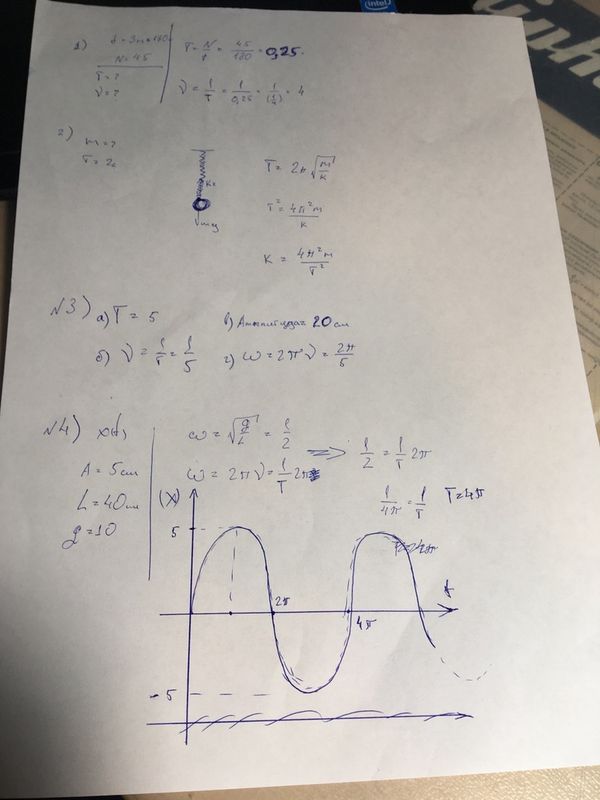 intel
1) t = 3m = 180c
N = 45
T = ?
ν = ?
T = N/t = 45/180 = 0,25.
ν = 1/T = 1/0,25 = 1/(1/4) = 4
2) m = ?
T = 2c
Kx
mg
T = 2π√(m/k)
T² = 4π²m/k
K = 4π²m/T²
N3) а) T = 5
в) Амплитуда = 20 см
б) ν = 1/T = 1/5
г) ω = 2πν = 2π/5
N4)
A = 5 см
L = 40 см
g = 10
ω = √(g/L) = 1/2
ω = 2πν = 1/T 2π
=> 1/2 = 1/T 2π
1/4π = 1/T T = 4π
(X)
5
2π
4π
t
-5